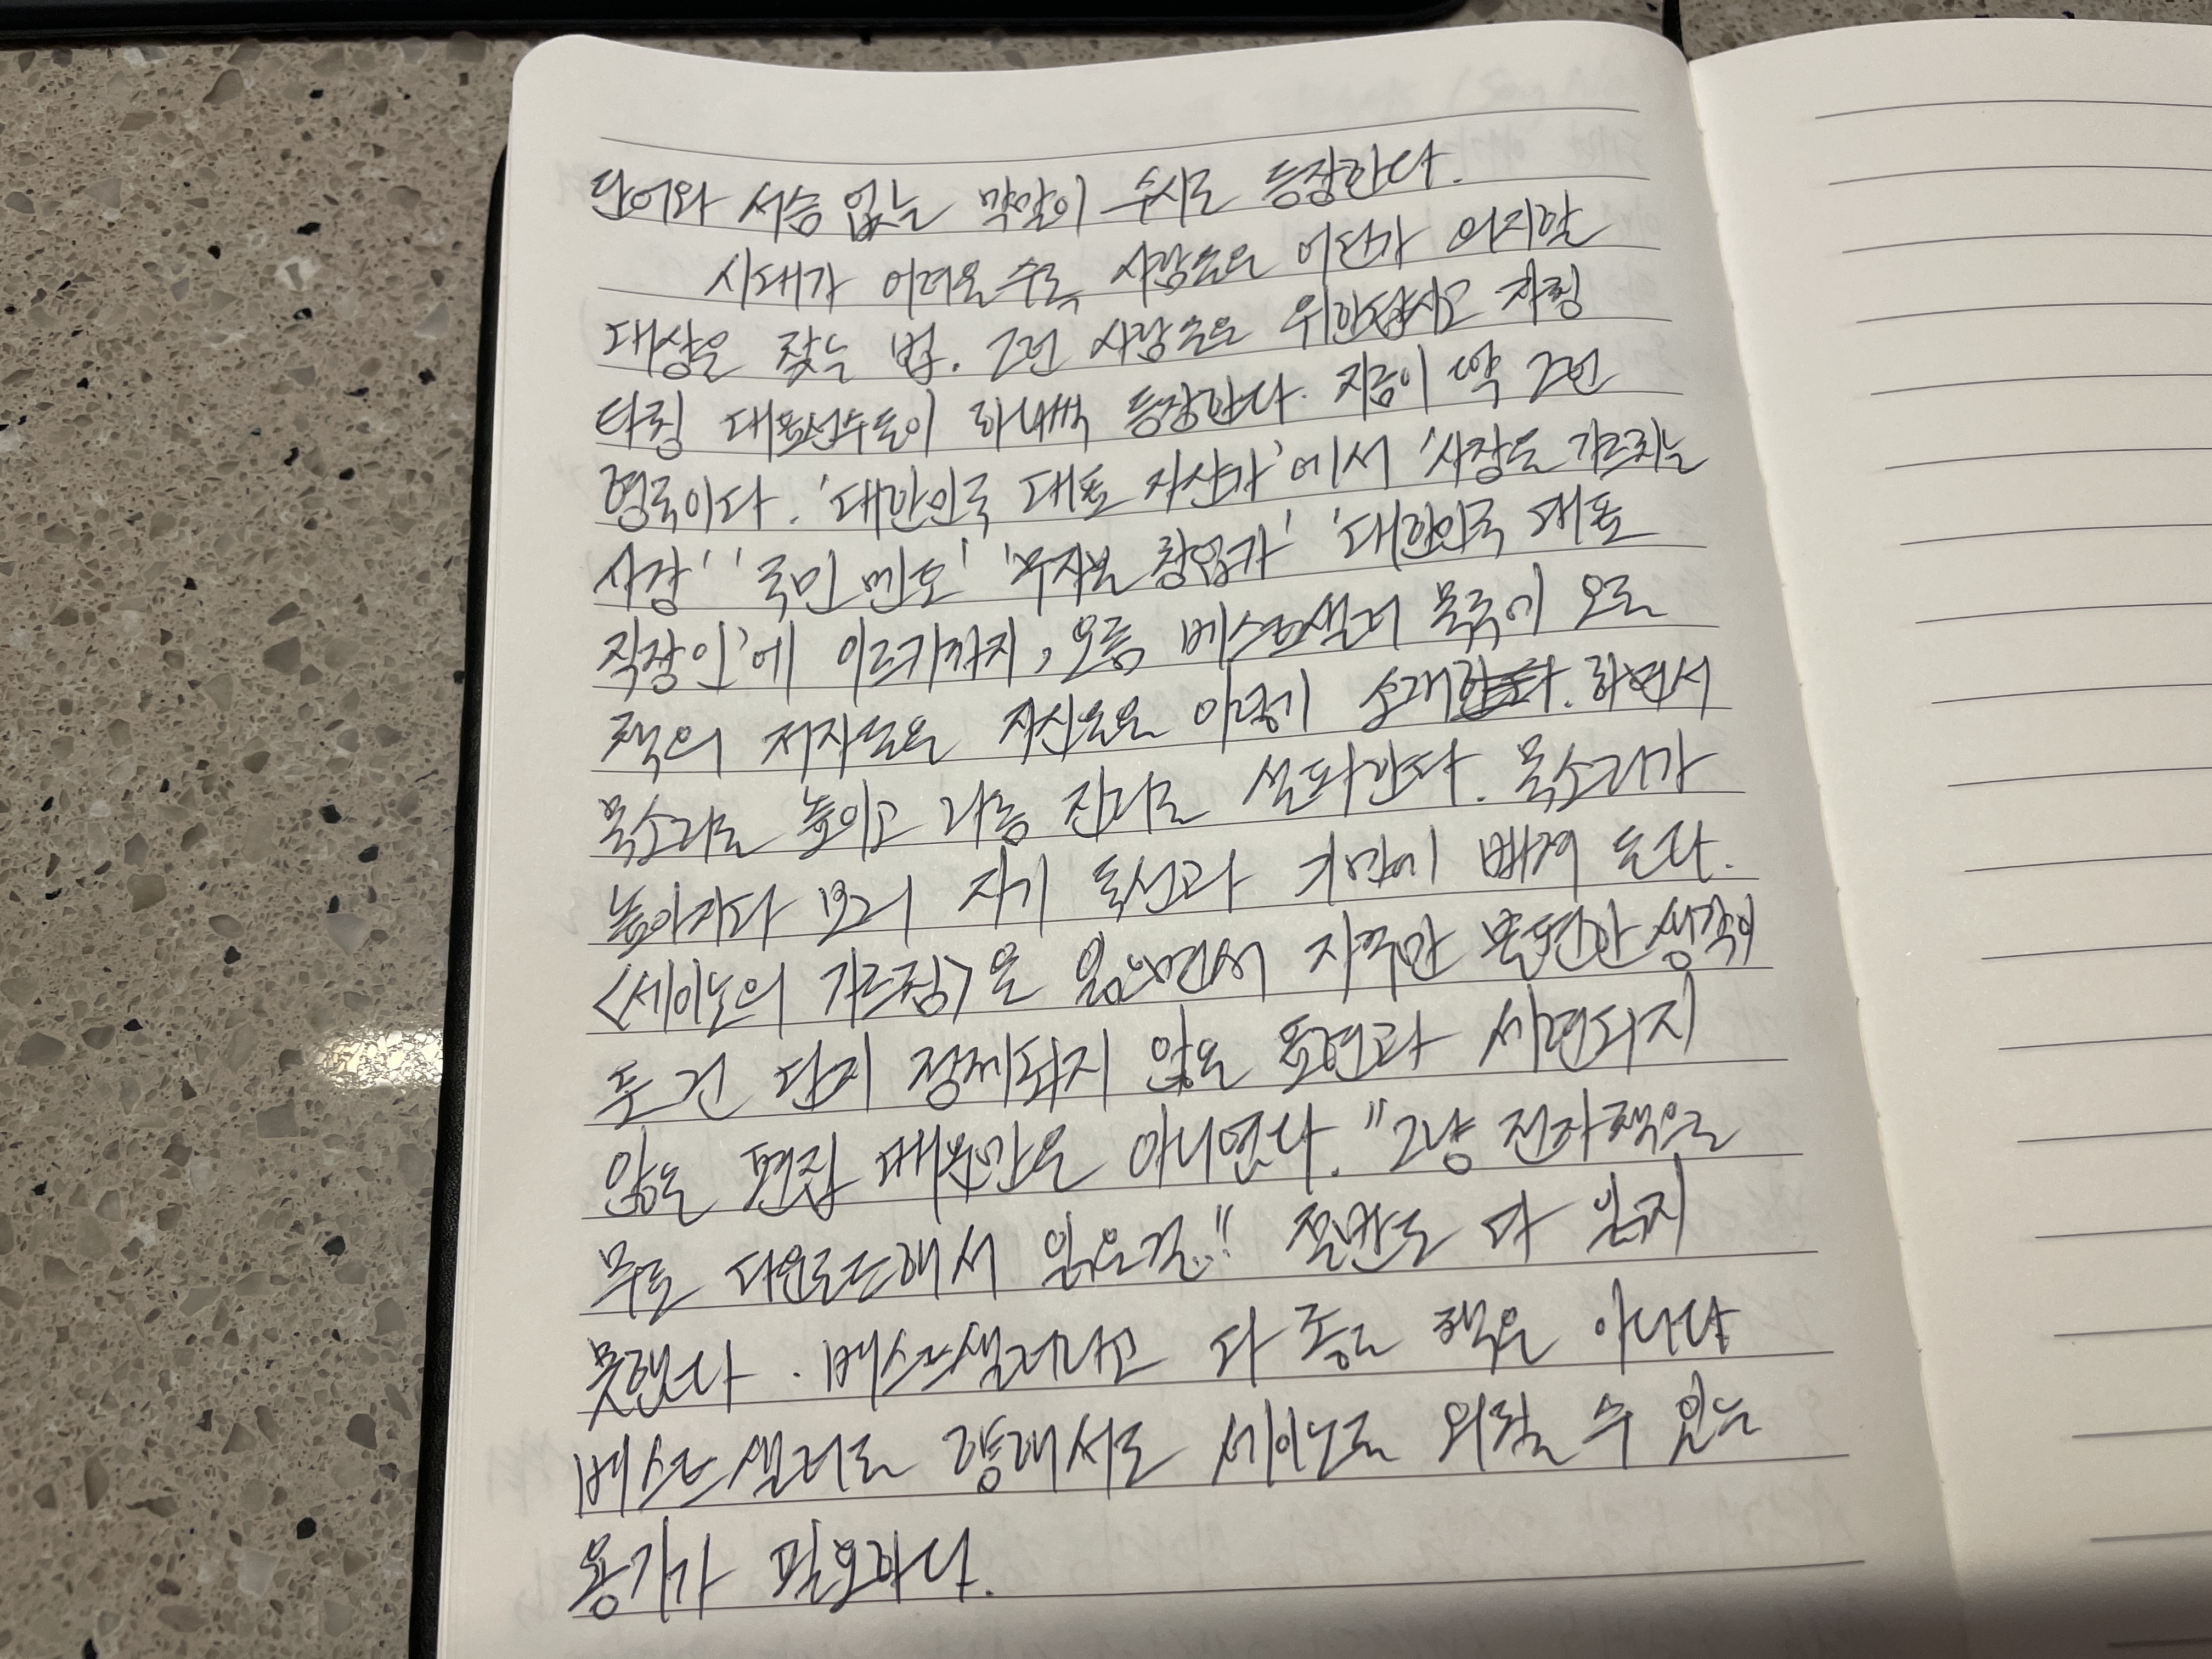 단어와 서슴없는 막말이 수시로 등장한다.
시대가 어려울수록 사람들은 어딘가 의지할
대상을 찾는 법. 그런 사람들을 위한답시고 자칭
타칭 대표선수들이 하나씩 등장한다. 지금이 딱 그런
형국이다. '대한민국 대표 자산가'에서 '사장을 가르치는
사장' '국민 멘토' '무자본 창업가' '대한민국 대표
직장인'에 이르기까지, 요즘 베스트셀러 목록에 오른
책의 저자들은 자신들을 이렇게 소개한다. 하면서
목소리를 높이고 나름 진리를 설파한다. 목소리가
높아지다 보니 자기 독선과 기만에 빠져 든다.
<세이노의 가르침>을 읽으면서 자꾸만 불편한 생각이
든 건 단지 정제되지 않은 표현과 세련되지
않은 편집 때문만은 아니었다. "그냥 전자책을
무료 다운로드해서 읽을걸.." 절반도 다 읽지
못했다. 베스트셀러라고 다 좋은 책은 아니다
베스트셀러를 향해서도 세이노를 외칠 수 있는
용기가 필요하다.